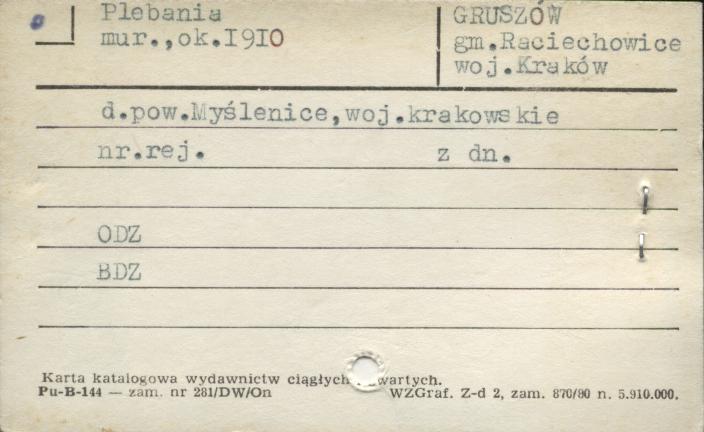 Plebania
mur.,ok.1910
GRUSZÓW
gm.Raciechowice
woj.Kraków
d.pow.Myślenice,woj.krakowskie
nr.rej. z dn.
ODZ
BDZ
Karta katalogowa wydawnictw ciągłych wartych.
Pu-B-144 — zam. nr 281/DW/On
WZGraf. Z-d 2, zam. 870/80 n. 5.910.000.